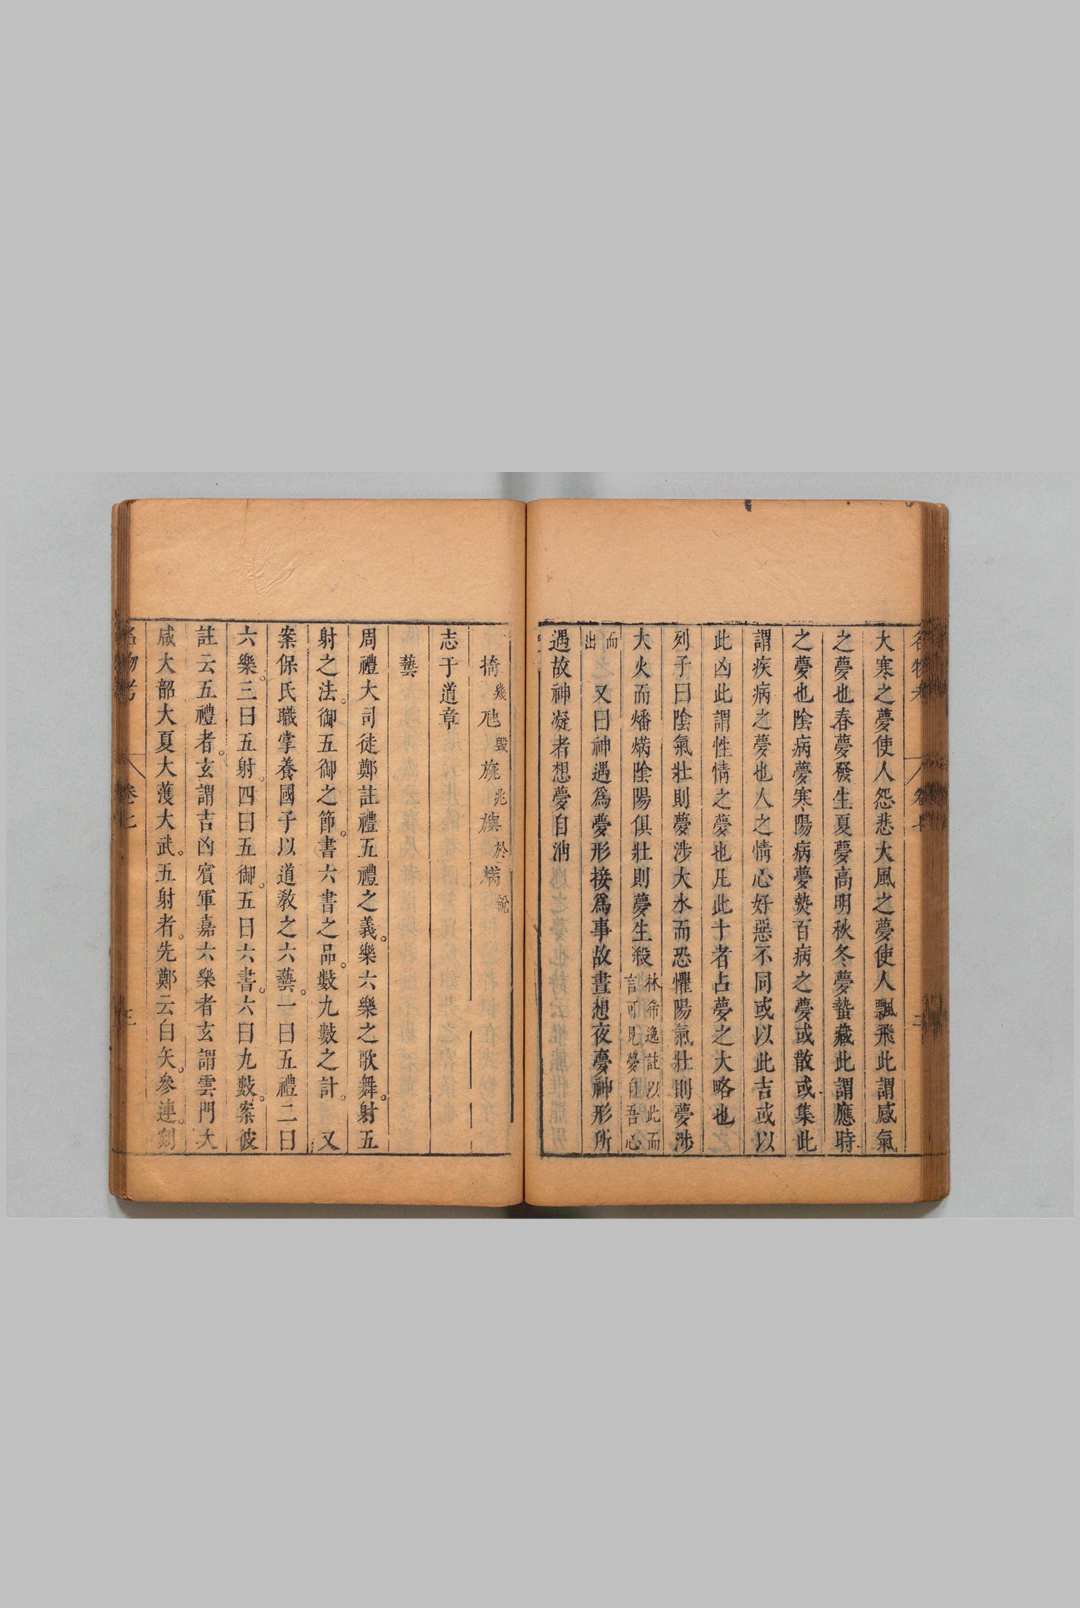 大寒之夢使人怨悲大風之夢使人飄飛此謂感氣
之夢也春夢發生夏夢高明秋冬夢蟄藏此謂應時
之夢也陰病夢寒陽病夢𤍠百病之夢或散或集此
謂疾病之夢也人之情心好惡不同或以此吉或以
此凶此謂性情之夢也凡此十者占夢之大略也
列子曰陰氣壯則夢涉大水而恐懼陽氣壯則夢涉
大火而燔焫陰陽俱壯則夢生殺林希逸註以此而言可見夢自吾心
而出 又曰神遇為夢形接為事故晝想夜夢神形所
遇故神凝者想夢自消
掎幾 毁 旐兆 旟於 説
志于道章
藝
周禮大司徒鄭註禮五禮之義樂六樂之歌舞射五
射之法御五御之節書六書之品數九數之計 又
案保氏職掌養國子以道敎之六藝一曰五禮二曰
六樂三曰五射四曰五御五曰六書六曰九數案彼
註云五禮者玄謂吉凶賓軍嘉六樂者玄謂雲門大
咸大韶大夏大濩大武五射者先鄭云白矢參連剡
名物考 卷七 三